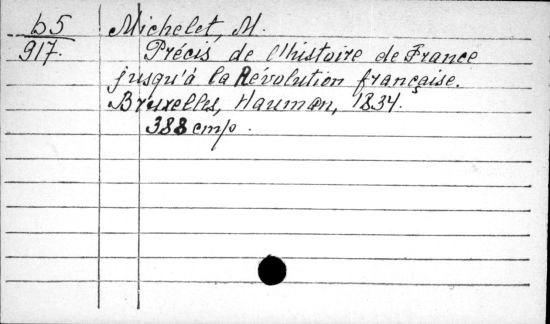 b5 Michelet, M.
917. Précis de l'histoire de France
jusqu'à la Révolution française.
Bruxelles, Hauman, 1834.
388 стр.